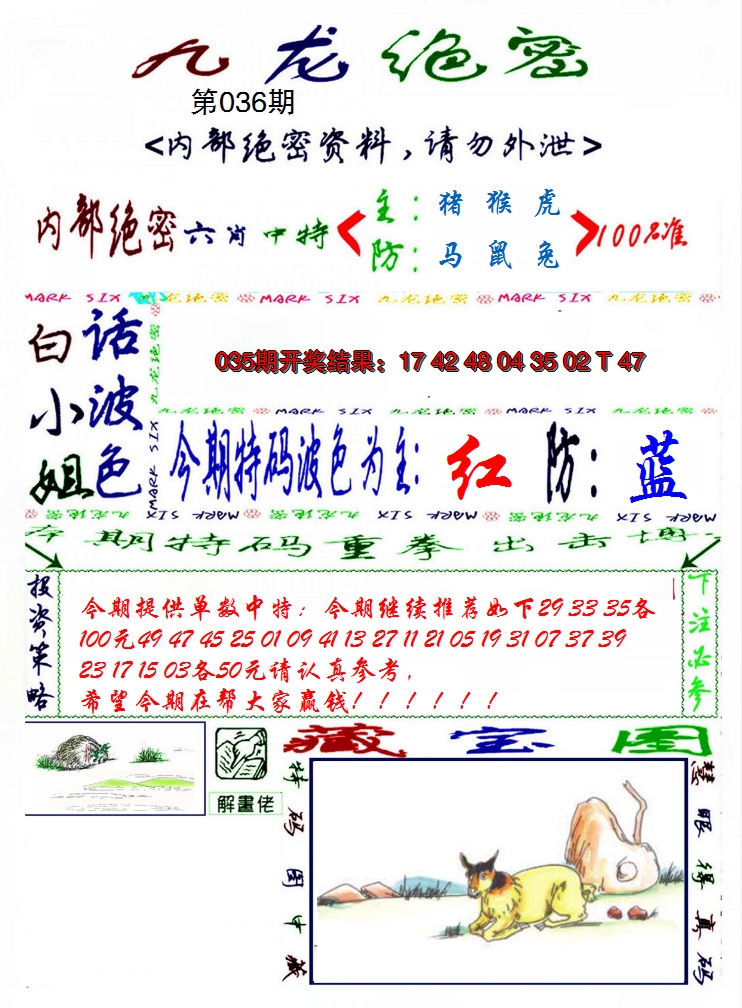 九龙绝密
第036期
<内部绝密资料,请勿外泄>
内部绝密六肖中特
主:猪 猴 虎
防:马 鼠 兔
100%准
MARK SIX 九龙绝密 MARK SIX 九龙绝密 MARK SIX 九龙绝密
白小姐
话波色
九龙绝密 MARK SIX
035期开奖结果:17 42 48 04 35 02 T 47
九龙绝密 MARK SIX 九龙绝密 MARK SIX 九龙绝密
今期特码波色为主:红 防:蓝
MARK SIX 九龙绝密 MARK SIX 九龙绝密 MARK SIX
本期特码重拳出击
投资策略
今期提供单数中特;今期继续推荐如下29 33 35各
100元49 47 45 25 01 09 41 13 27 11 21 05 19 31 07 37 39
23 17 15 03各50元请认真参考,
希望今期在帮大家赢钱!!!!!!
下注必参
解畫佬
藏宝图
特码图中藏
慧眼得真码